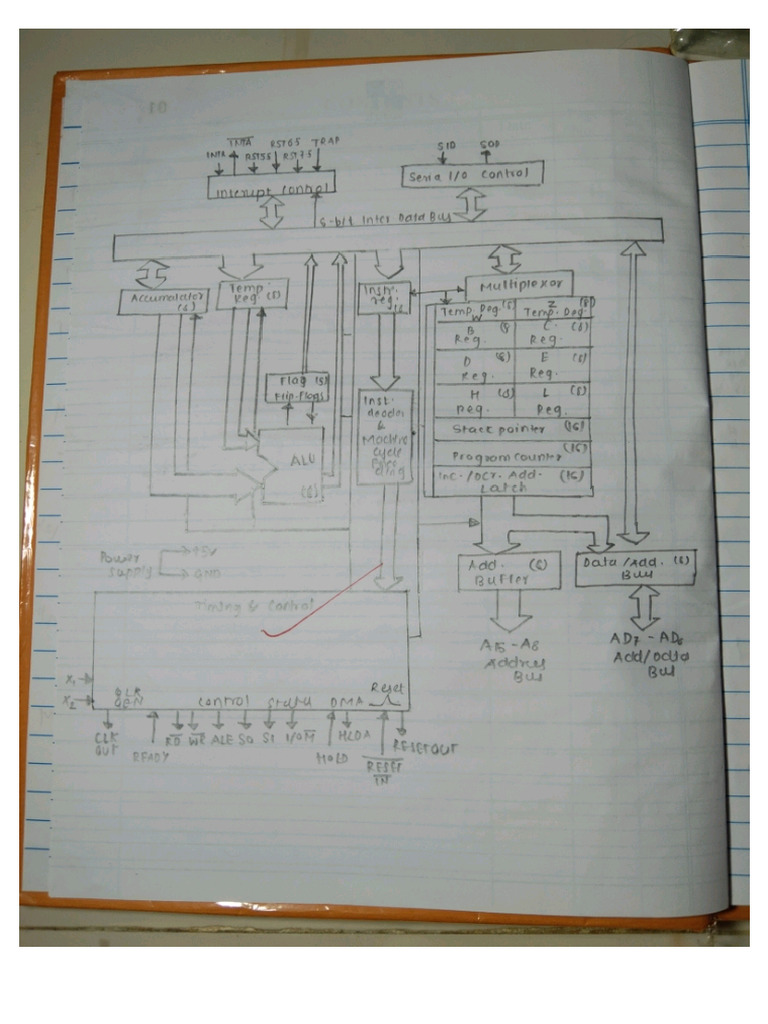 INTA RST6.5 TRAP
INTR RST5.5 RST7.5
SID SOD
Interupt Control
Seria I/O Control
8-bit Inter Data Bus
Accumalator (8)
Temp. Reg. (8)
Instr. reg.
Multiplexor
Temp. Reg. (8) W
Z (8) Temp. Reg.
B (8) Reg.
C (8) Reg.
D (8) Reg.
E (8) Reg.
H (8) Reg.
L (8) Reg.
Flag (8)
Flip-Flogs
Inst.
&
Machine
Cycle
ALU
(8)
Stack pointer (16)
Program counter (16)
Inc./Dcr. Add. (16)
Latch
Power +5V
Supply GND
Add. (8)
Buffer
Data/Add. (8)
Bus
Timing & Control
A15-A8
Address
Bus
AD7-AD0
Add/Data
Bus
X1
X2
CLK
GEN
Control Status DMA Reset
CLK
OUT
READY
RD WR ALE S0 S1 I/OM
HOLD
HLDA
RESET
IN
RESET OUT